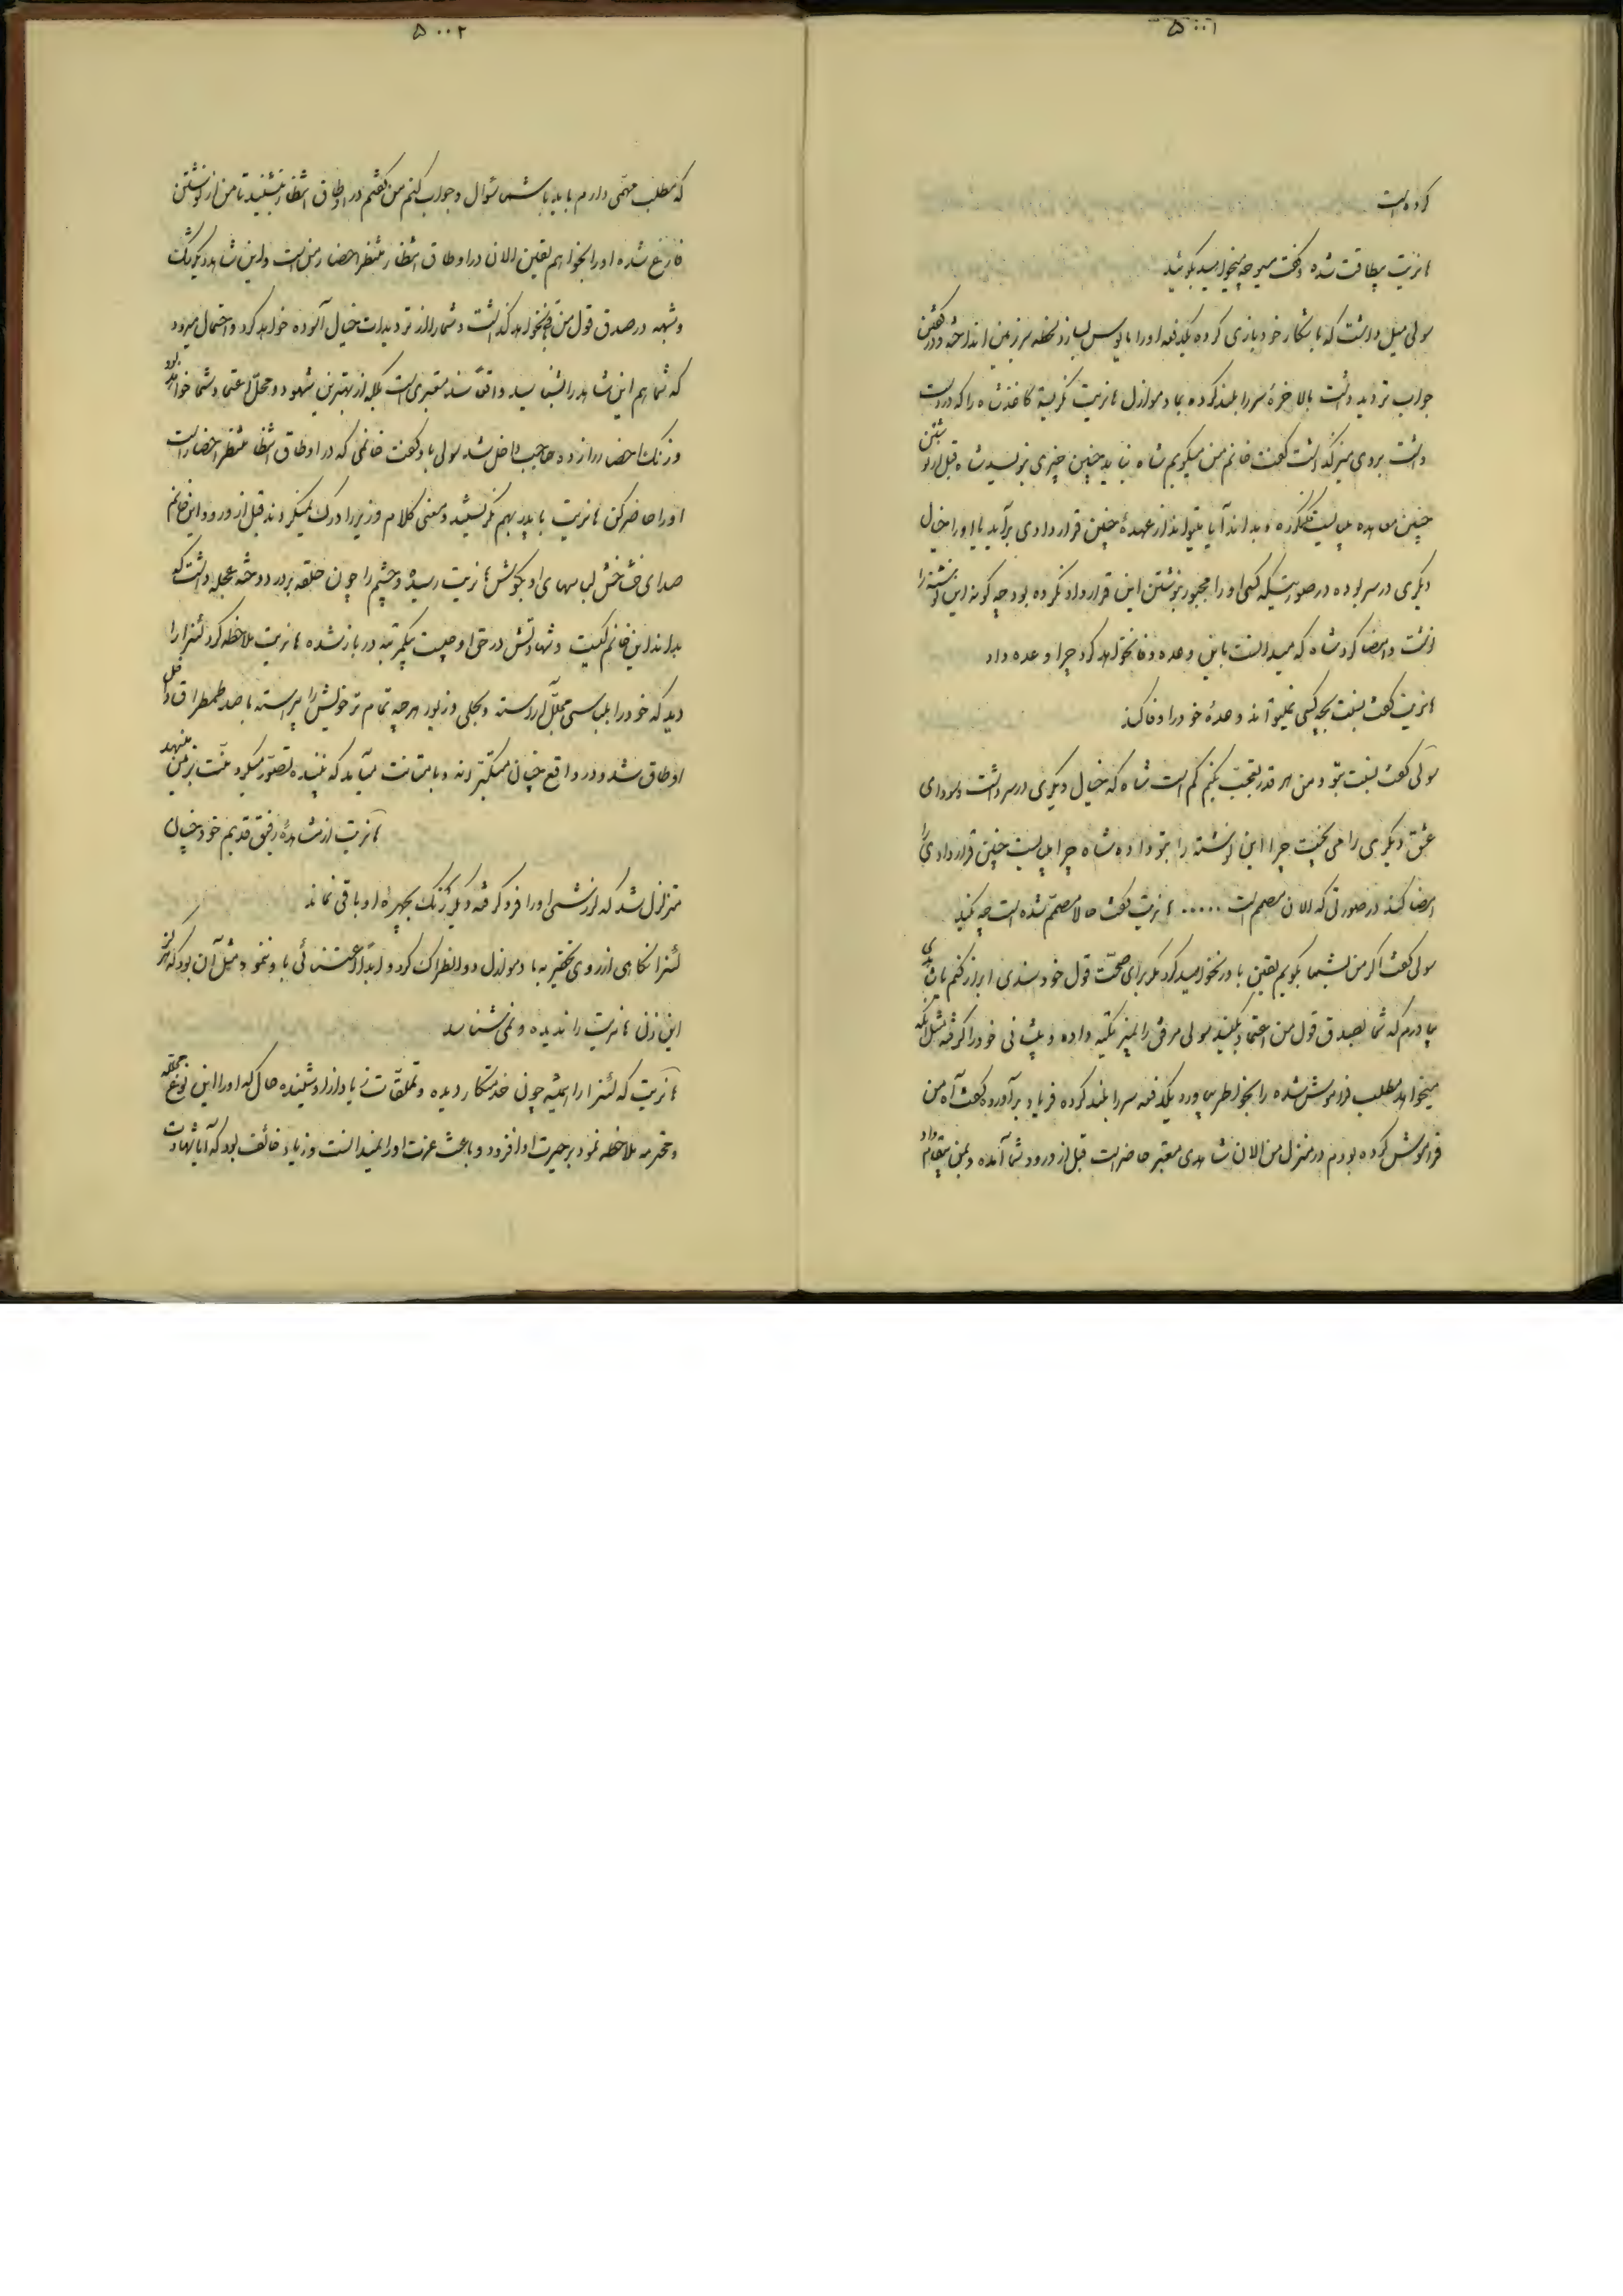 ۵۰۰۱
کرده است
هانریت بیطاقت شده و گفت میر چه میخواهید بگوئید
سولی میل داشت که با شکار خود بازی کرده یکدفعه او را مأیوس نسازد لحظه سر بزمین انداخته و در گفتن
جواب تردید داشت بالاخره سر را بلند کرده بمادموازل هانریت نگریسته کاغذ شاه را که در دست
داشت بروی میز گذاشت گفت خانم من میگویم شاه نباید چنین چیزی بنویسد شاه قبل از نوشتن
چنین معاهده بایست فکر کرده و بداند آیا میتواند از عهدهٔ چنین قراردادی برآید یا او را خیال
دیگری در سر بوده در صورتیکه کسی او را مجبور بنوشتن این قرارداد نکرده بود چگونه این نوشته را
نوشت و امضا کرد شاه که میدانست باین وعده وفا نخواهد کرد چرا وعده داد
هانریت گفت نسبت بچه کسی نمیتواند وعدهٔ خود را وفا کند
سولی گفت نسبت بتو و من هر قدر تعجب بکنم کم است شاه که خیال دیگری در سر داشت و سودای
عشق دیگری را می پخت چرا این نوشته را بتو داده شاه چرا بایست چنین قراردادی را
امضا کند در صورتی که الان مصمم است ..... هانریت گفت حالا مصمم شده است چه بکند
سولی گفت اگر من بشما بگویم یقین باور نخواهید کرد مگر برای صحت قول خود سندی ابراز کنم یا شاهدی
بیاورم که شما بصدق قول من اعتماد بکنید سولی مرفق را بمیز تکیه داده و پیشانی خود را گرفته مثل آنکه
میخواهد مطلب فراموش شده را بخواطر بیاورد یکدفعه سر را بلند کرده فریاد برآورده گفت آه من
فراموش کرده بودم در منزل من الان شاهدی معتبر حاضر است قبل از ورود شما آمده و بمن پیغام داد
۵۰۰۲
که مطلب مهمی دارم باید با شما سئوال و جواب کنم من گفتم در اوطاق انتظار بنشینید تا من از نوشتن
فارغ شده او را بخواهم یقین الان در اوطاق انتظار منتظر احضار من است و این شاهد دیگر شک
و شبهه در صدق قول من باقی نخواهد گذاشت و شما را از تردیدات خیال آسوده خواهد کرد و احتمال میرود
که شما هم این شاهد را بشناسید واقعاً سند معتبری است بلکه از بهترین شهود و محل اعتماد شما خواهد بود
و زنگ احضار را زده حاجب داخل شد سولی باو گفت خانمی که در اوطاق انتظار منتظر احضار است
او را حاضر کن هانریت با پدر بهم نگریستند و معنی کلام وزیر را درک نمیکردند قبل از ورود این خانم
صدای خش خش لباسهای او بگوش هانریت رسیده و چشم را چون حلقه بر در دوخته عجله داشت که
بداند این خانم کیست و شهادتش در حق او چیست یکمرتبه در باز شده هانریت ملاحظه کرد لئنرا را
دید که خود را بلباسی مجلل آراسته و بحلی و زیور هر چه تمام تر خویش را پیراسته با صد طمطراق داخل
اوطاق شد و در واقع چنان متکبرانه و با متانت میآید که بیننده تصور میکرد منت بر زمین مینهد
هانریت از مشاهدهٔ رفیق قدیم خود چنان
متزلزل شد که لرزشی او را فرو گرفته و دیگر رنگ بچهره او باقی نماند
لئنرا نگاهی از روی تحقیر به مادموازل دوانطراک کرد و ابداً اعتنائی باو ننمود مثل آن بود که هرگز
این زن هانریت را ندیده و نمی شناسد
هانریت که لئنرا را همیشه چون خدمتکار دیده و تملقات زیاد از او شنیده حال که او را این نوع مجلله
و محترمه ملاحظه نمود بر حیرت او افزود و باعث عزت او را نمیدانست و زیاد خائف بود که آیا شهادت